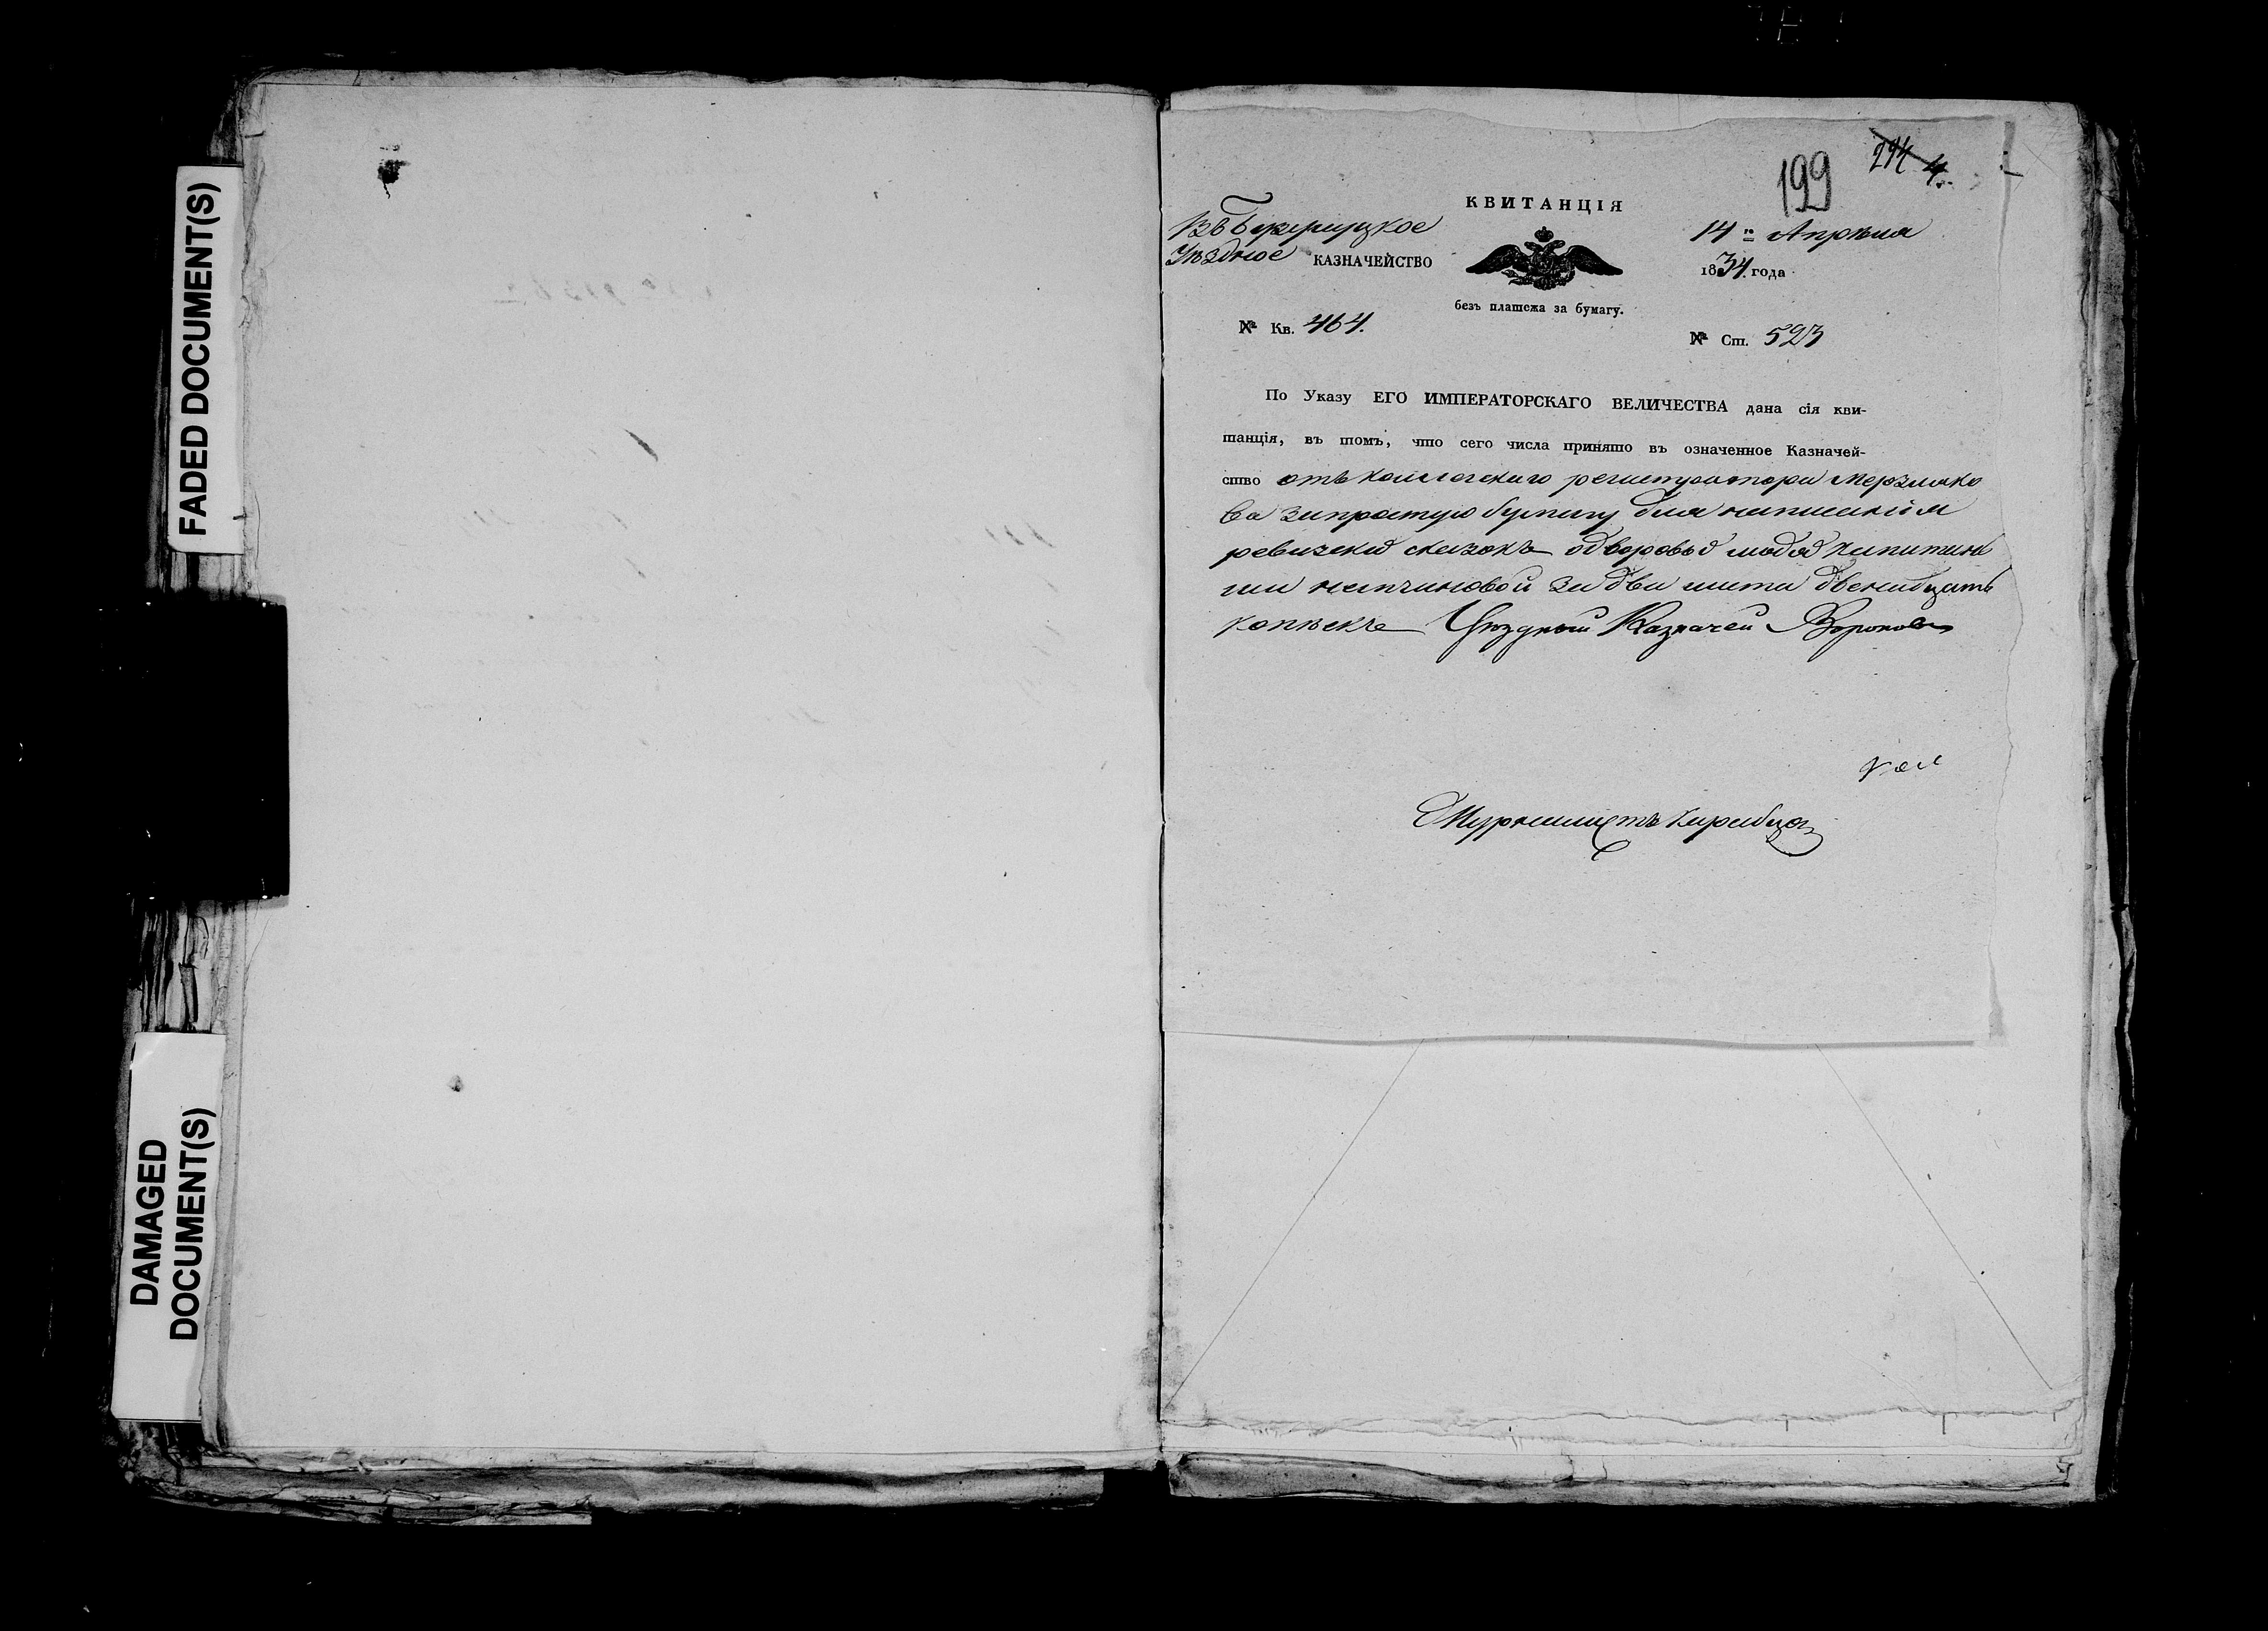 FADED DOCUMENT(S)
DAMAGED
DOCUMENT(S)
199
КВИТАНЦІЯ
Уѣздное КАЗНАЧЕЙСТВО
14го Апрѣля
1834. года
безъ платежа за бумагу.
№ Кв. 464.
№ Ст. 523
По Указу ЕГО ИМПЕРАТОРСКАГО ВЕЛИЧЕСТВА дана сія кви-
танція, въ томъ, что сего числа принято въ означенное Казначей-
ство отъ колежскаго регистратора Мерзляко
ва за простую бумагу для написанія
ревизскихъ сказокъ о дворовыхъ людях капитан
ши за два листа двенадцать
копѣекъ Уѣздный Казначей Воронов
Журналистъ